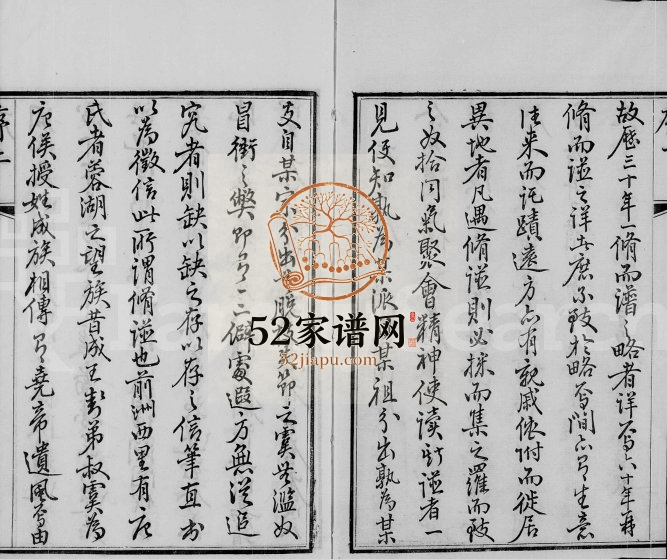 故歷三十年一脩而譜之略者詳焉六十年再
脩而譜之詳者庶不致於略焉間亦有生意
往來而託蹟遠方亦有親戚依附而徙居
異地者凡遇脩譜則必採而集之羅而致
之如拾同氣聚會精神使讀斯譜者一
見便知孰為某派某祖分出孰為某
支自某宗分出其晚節之虞其濫奴
冒銜之弊即有一二僻處遐方無從追
究者則缺以缺之存以存之信筆直書
以為徵信此所謂脩譜也前洲西里有唐
氏者蓉湖之望族昔成王封弟叔虞為
唐侯授姓成族相傳有堯帝遺風焉由
序二
52家谱网
52jiapu.com